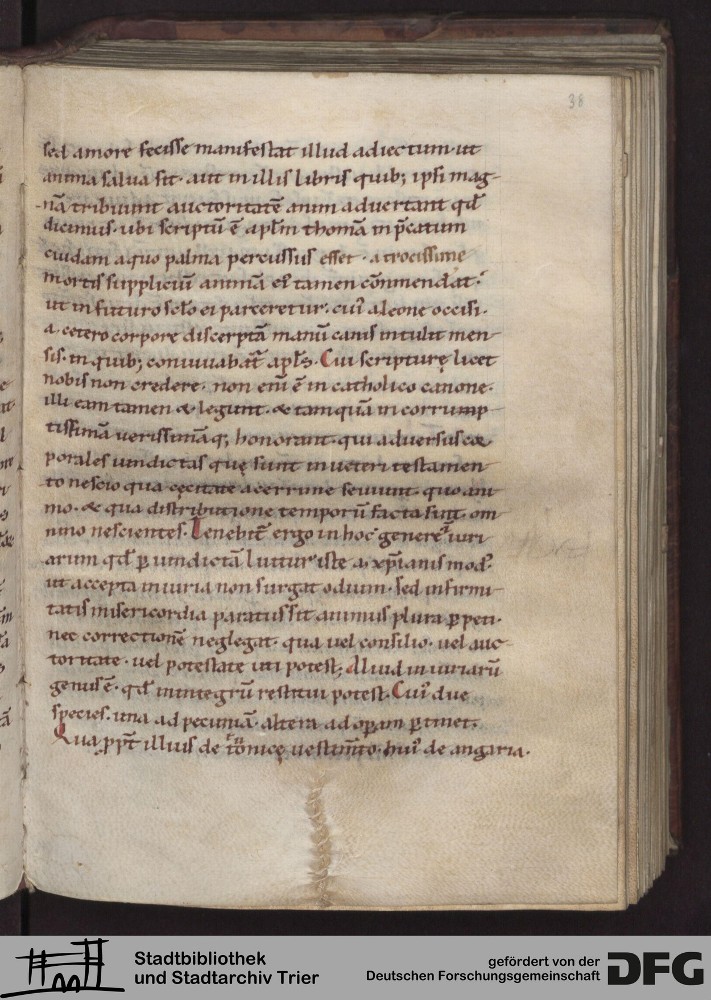 38
sed amore fecisse manifestat illud adiectum · ut
anima salua sit · aut in illis libris quib; ipsi mag-
nā tribuunt auctoritatē animaduertant qđ
dicimus · ubi scriptū ē apłm thomam inp̄catum
cuidam a quo palma percussus esset · atrocissime
mortis supplicium animā ei tamen cōmendat ·
ut in futuro sclo ei parceretur · cui a leone occisi ·
a cetero corpore discerptā manū canis intulit men-
sis · in quib; conuiuabat̄ apłs · Cui scripturę licet
nobis non credere · non eni ē in catholico canone ·
illi eam tamen & legunt · & tamquā incorrump-
tissimā uerissimāq; honorant · qui aduersus cor-
porales uindictas quę sunt in ueteri testamen-
to nescio qua cęcitate acerrime seuiunt · quo ani-
mo · & qua distributione temporū facta sint om-
nino nescientes · Tenebit̄ ergo in hoc genere iniuri
arum qđ ꝑ uindictā luitur iste a xp̄ianis mod⁹
ut accepta iniuria non surgat odium · sed infirmi-
tatis misericordia paratus sit animus plura ꝑpeti ·
nec correctionē neglegat · qua uel consilio · uel auc-
toritate · uel potestate uti potest; Aliud iniuriarū
genus ē · qđ in integrū restitui potest · Cui⁹ due
species · una ad pecuniā · altera ad oꝑam ꝑtinet ·
Qua ꝓpt̄ illius de tonicę uestim̄to · hui⁹ de angaria ·
Stadtbibliothek
und Stadtarchiv Trier
gefördert von der
Deutschen Forschungsgemeinschaft
DFG